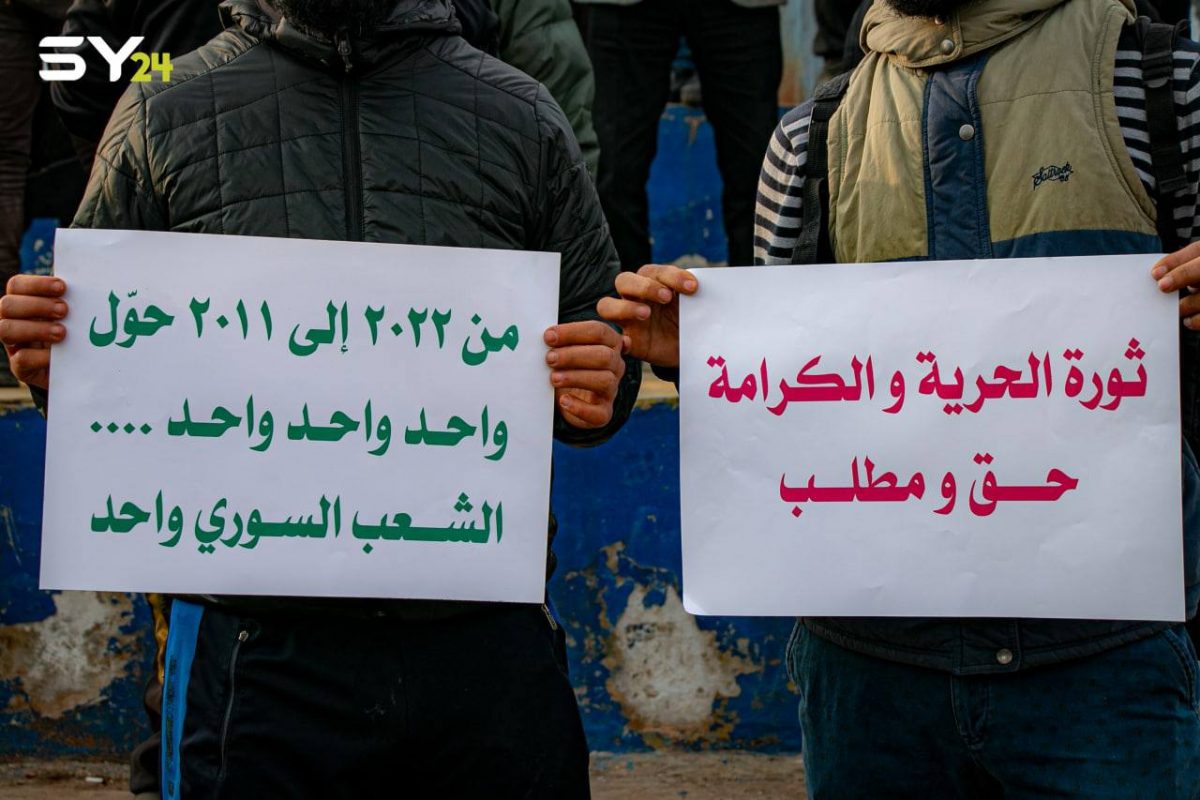 SY24
من ٢٠٢٢ إلى ٢٠١١ حوّل
واحد واحد واحد ....
الشعب السوري واحد
ثورة الحرية و الكرامة
حق و مطلب